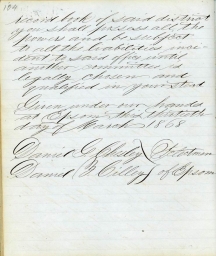 184
record book of said district
you shall possess all the
powers and be subject
to all the liabilities inci-
dent to said office until
another committee is
legally chosen and
qualified in your stead
Given under our hands
at Epsom this thirtieth
day of March 1868
Daniel G Chesley Selectmen
Daniel F Cilley of Epsom